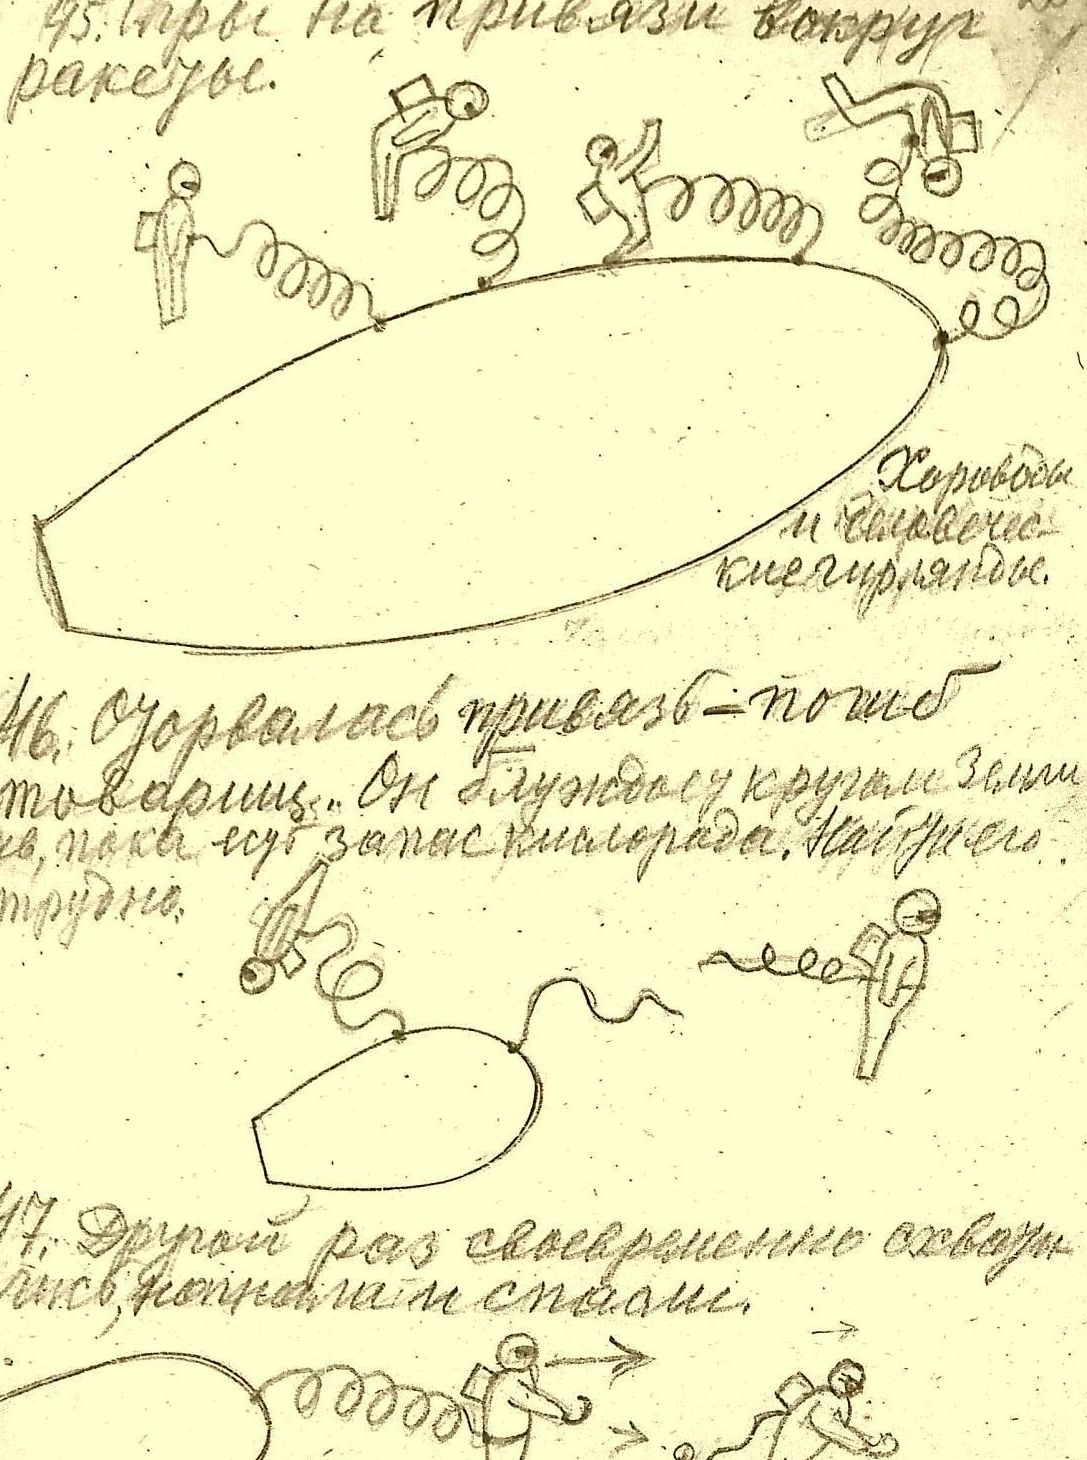 45. Игры на привязи вокруг
ракеты.
Хороводы
и человечес-
кие гирлянды.
46. Оторвалась привязь – погиб
товарищ... Он блуждает кругом Земли
пока есть запас кислорода. Найти его
трудно.
47. Другой раз своевременно схвати-
лись, нагнали и спасли.